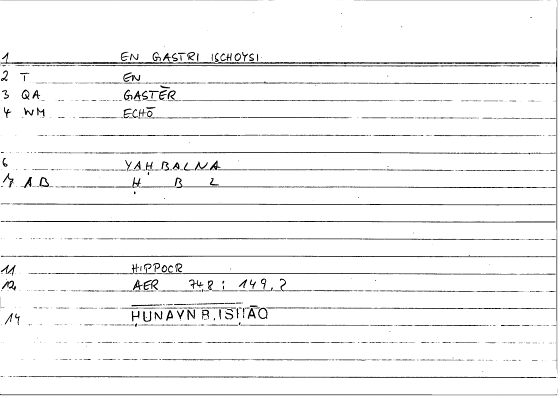 1 EN GASTRI ISCHOYSI
2 T EN
3 QA GASTĒR
4 WM ECHŌ
6 YAḤBALNA
7 AB Ḥ B L
11 HIPPOCR
12 AER 74,8 ; 149,2
14 ḤUNAYN B. ISḤĀQ